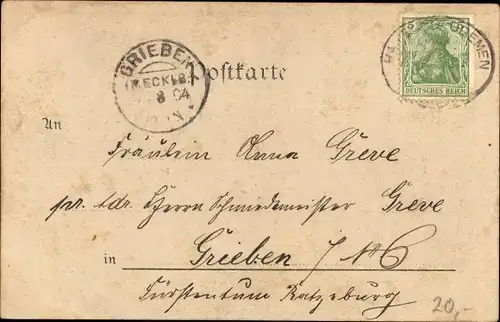 GRIEBEN
(MECKLB.)
8 04
Postkarte
5
BREMEN
DEUTSCHES REICH
An
Fräulein Anna Greve
pr. adr. Herrn Schmiedemeister Greve
in Grieben
Fürstentum Ratzeburg
20,-